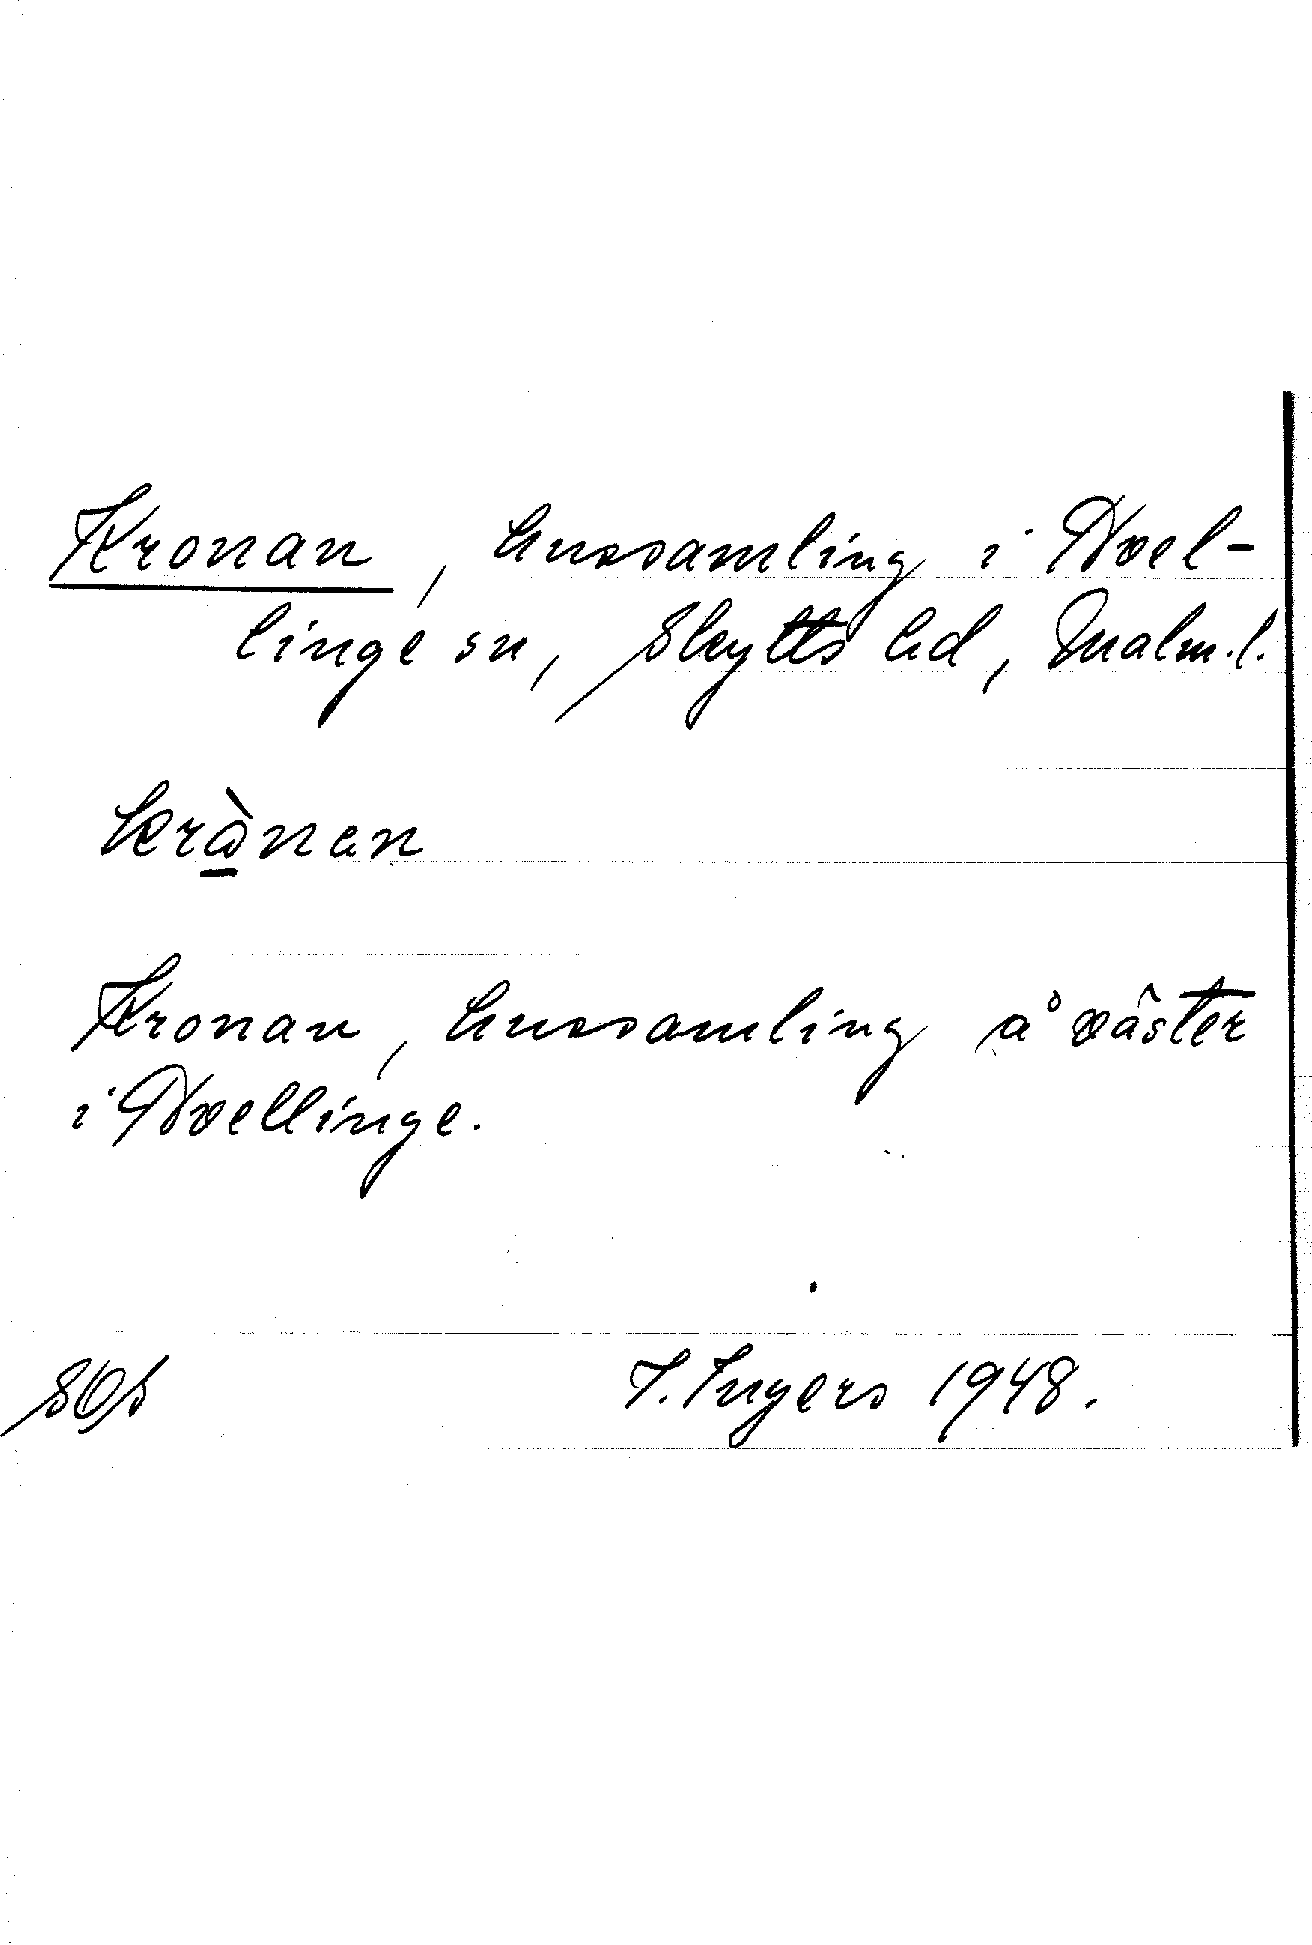 Kronan, hussamling i Vel-
linge sn, Skytts hd, Malm.l.
Kronan, hussamling å väster
i Vellinge.
I. Ingers 1948.